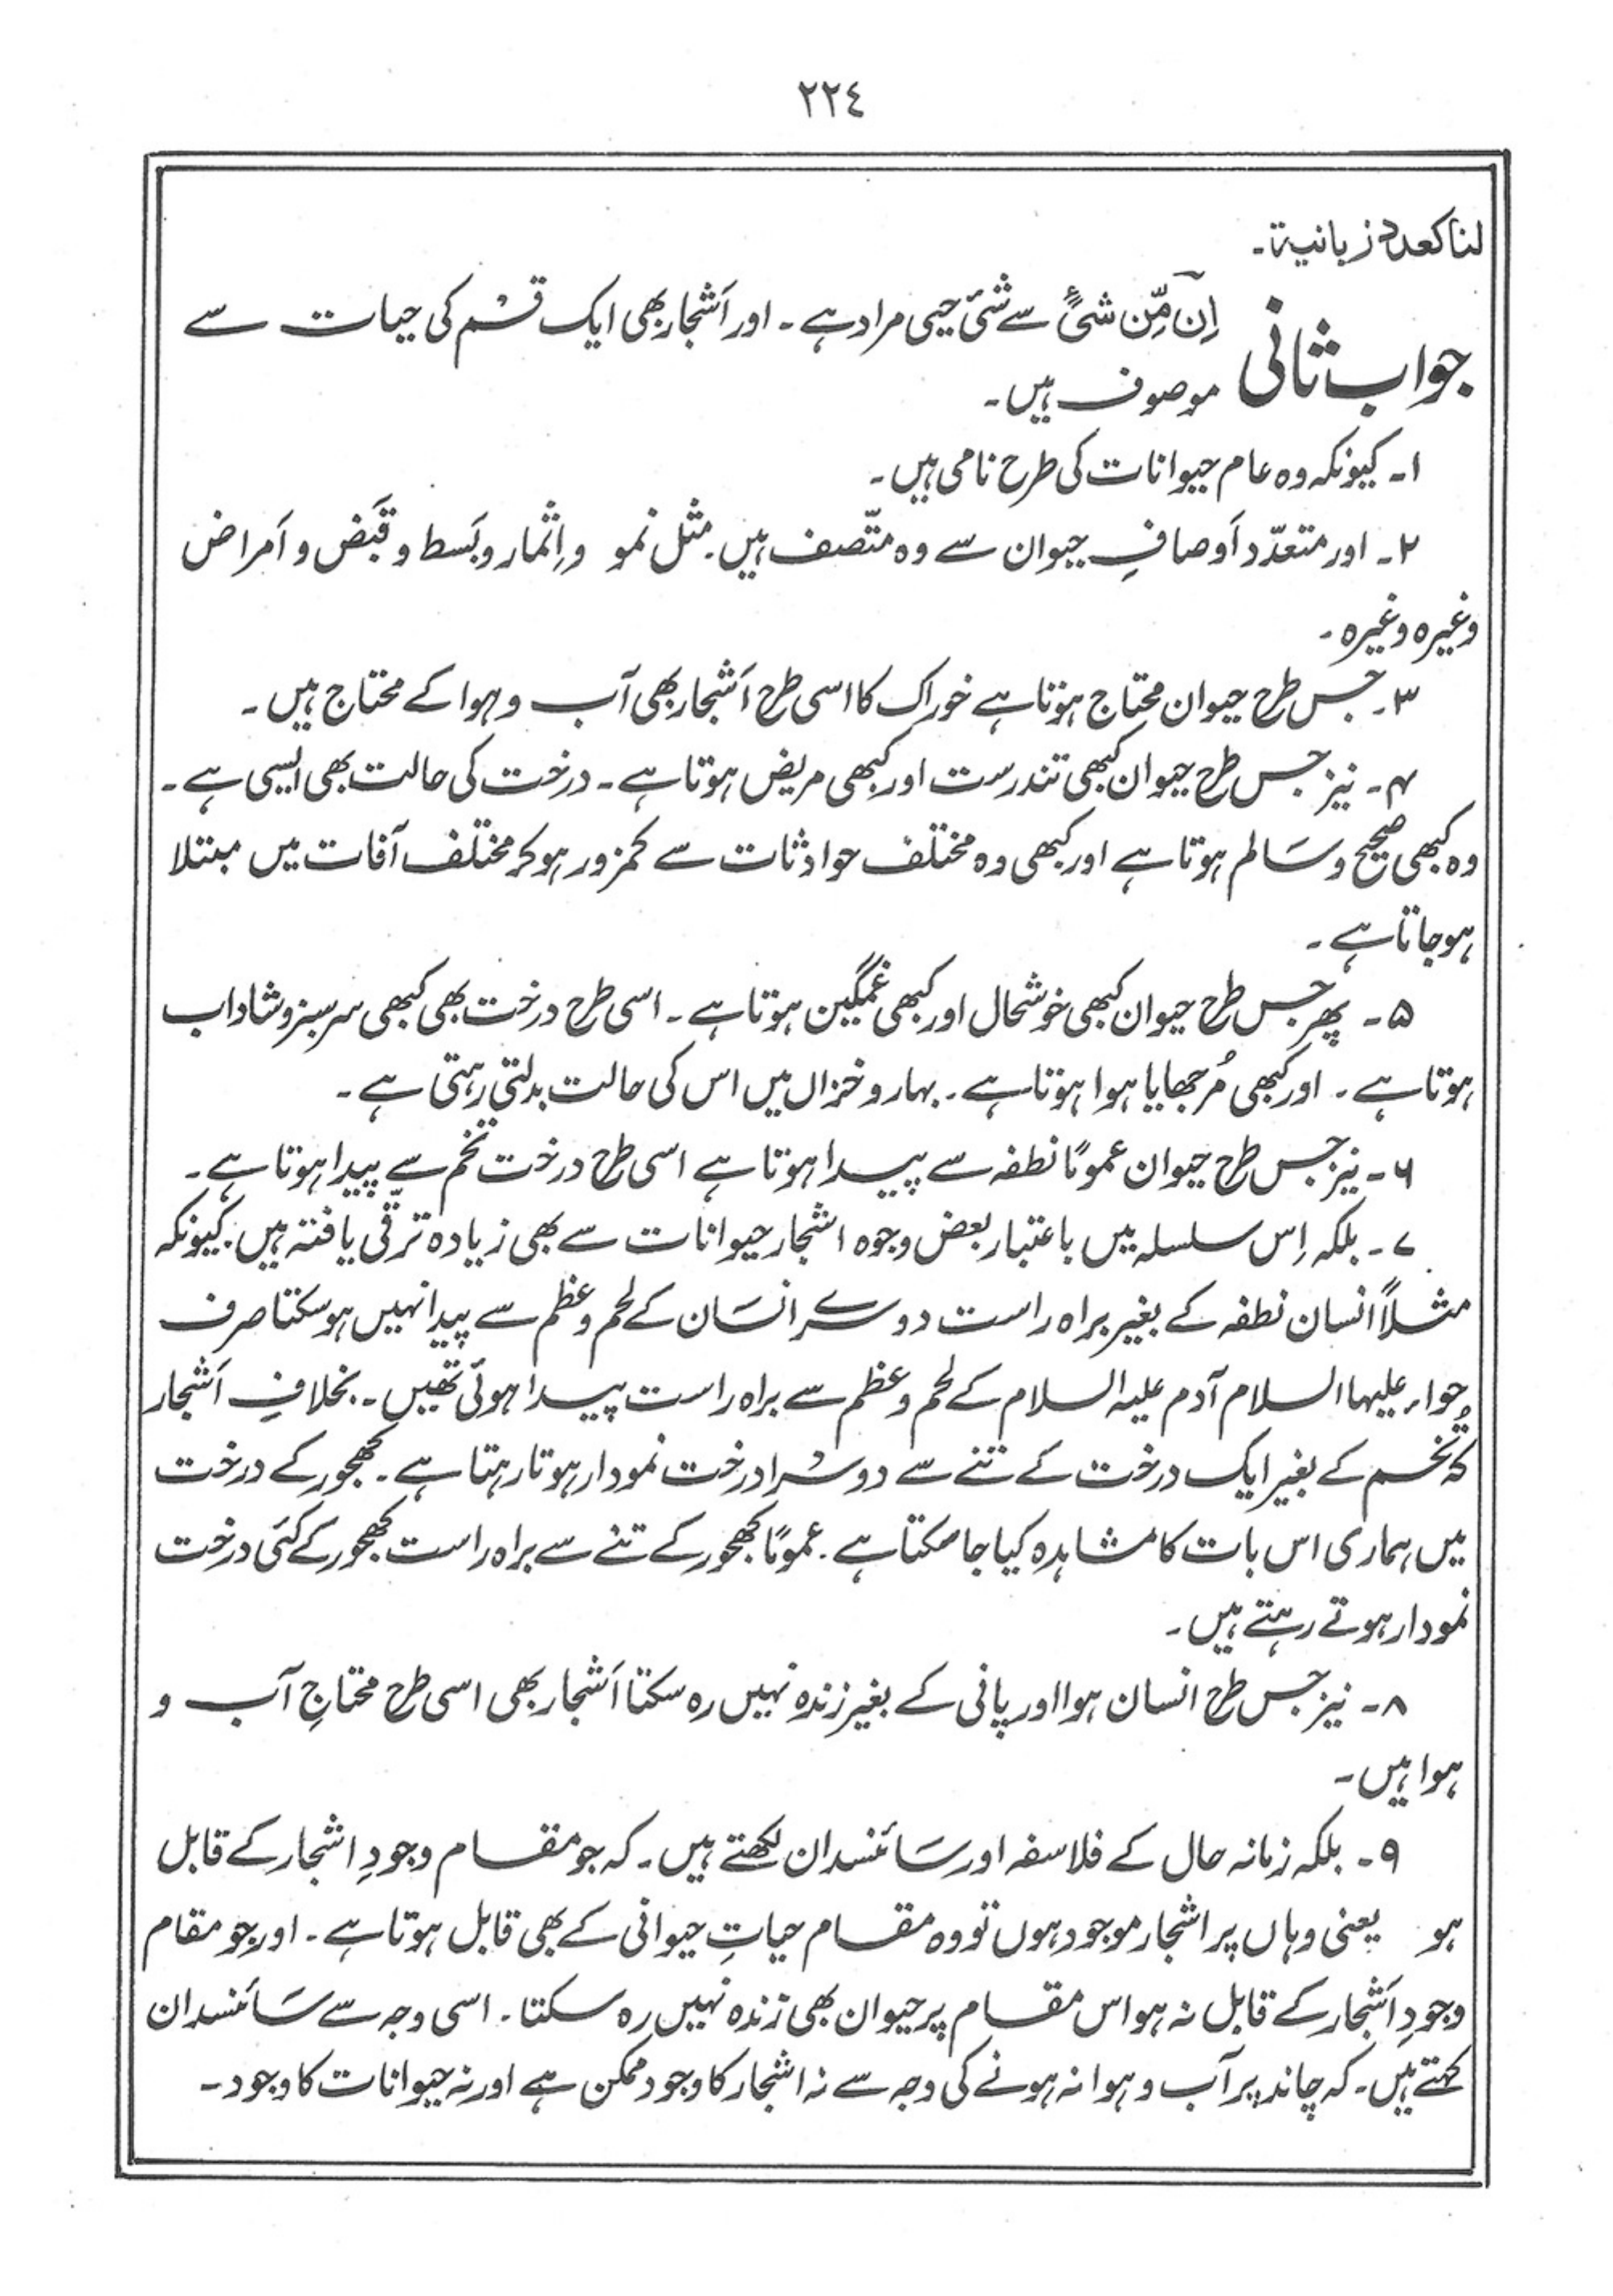 ٢٢٤
لنا کعدد زبانیة۔
جواب ثانی اِن مِّن شیٔ سے شیٔ حیی مراد ہے۔ اور اَشجار بھی ایک قسْم کی حیات سے
موصوف ہیں۔
۱۔ کیونکہ وہ عام حیوانات کی طرح نامی ہیں۔
۲۔ اور متعدّد اَوصافِ حیوان سے وہ متّصف ہیں. مثل نمو و اِثمار و بَسط و قبَض و اَمراض
وغیرہ وغیرہ۔
۳۔ جس طرح حیوان محتاج ہوتا ہے خوراک کا اسی طرح اَشجار بھی آب و ہوا کے محتاج ہیں۔
۴۔ نیز جس طرح حیوان کبھی تندرست اور کبھی مریض ہوتا ہے۔ درخت کی حالت بھی ایسی ہے۔
وہ کبھی صحیح و سَالم ہوتا ہے اور کبھی وہ مختلف حوادثات سے کمزور ہوکر مختلف آفات میں مبتلا
ہوجاتا ہے۔
۵۔ پھر جس طرح حیوان کبھی خوشحال اور کبھی غمگین ہوتا ہے۔ اسی طرح درخت بھی کبھی سرسبز و شاداب
ہوتا ہے۔ اور کبھی مُرجھایا ہوا ہوتا ہے۔ بہار و خزاں میں اس کی حالت بدلتی رہتی ہے۔
۶۔ نیز جس طرح حیوان عمومًا نطفہ سے پیدا ہوتا ہے اسی طرح درخت تخم سے پیدا ہوتا ہے۔
۷۔ بلکہ اِس سلسلہ میں باعتبار بعض وجوہ اشجار حیوانات سے بھی زیادہ ترقّی یافتہ ہیں. کیونکہ
مثلًا انسان نطفہ کے بغیر براہ راست دوسرے انسَان کے لحم و عظم سے پیدا نہیں ہوسکتا صرف
حواء علیہا السلام آدم علیہ السلام کے لحم و عظم سے براہ راست پیدا ہوئی تھیں۔ بخلافِ اَشجار
کہ تُخم کے بغیر ایک درخت کے تنے سے دوسْرا درخت نمودار ہوتا رہتا ہے۔ کھجور کے درخت
میں ہماری اس بات کا مشاہدہ کیا جا سکتا ہے. عمومًا کھجور کے تنے سے براہ راست کھجور کے کئی درخت
نمودار ہوتے رہتے ہیں۔
۸۔ نیز جس طرح انسان ہوا اور پانی کے بغیر زندہ نہیں رہ سکتا اَشجار بھی اسی طرح محتاجِ آب و
ہوا ہیں۔
۹۔ بلکہ زمانہ حال کے فلاسفہ اور سَائنسدان لکھتے ہیں۔ کہ جو مقام وجودِ اشجار کے قابل
ہو یعنی وہاں پر اشجار موجود ہوں تو وہ مقام حیاتِ حیوانی کے بھی قابل ہوتا ہے۔ اور جو مقام
وجودِ اَشجار کے قابل نہ ہو اس مقام پر حیوان بھی زندہ نہیں رہ سکتا۔ اسی وجہ سے سَائنسدان
کہتے ہیں۔ کہ چاند پر آب و ہوا نہ ہونے کی وجہ سے نہ اشجار کا وجود ممکن ہے اور نہ حیوانات کا وجود۔